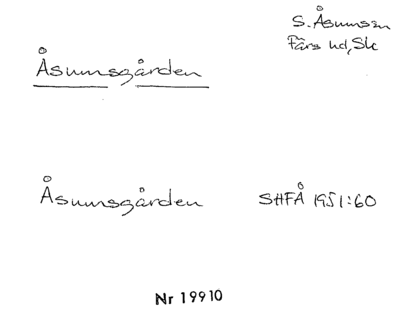 S. Åsums sn
Färs hd, Sk
Åsumsgården
Åsumsgården SHFÅ 1951:60
Nr 19910